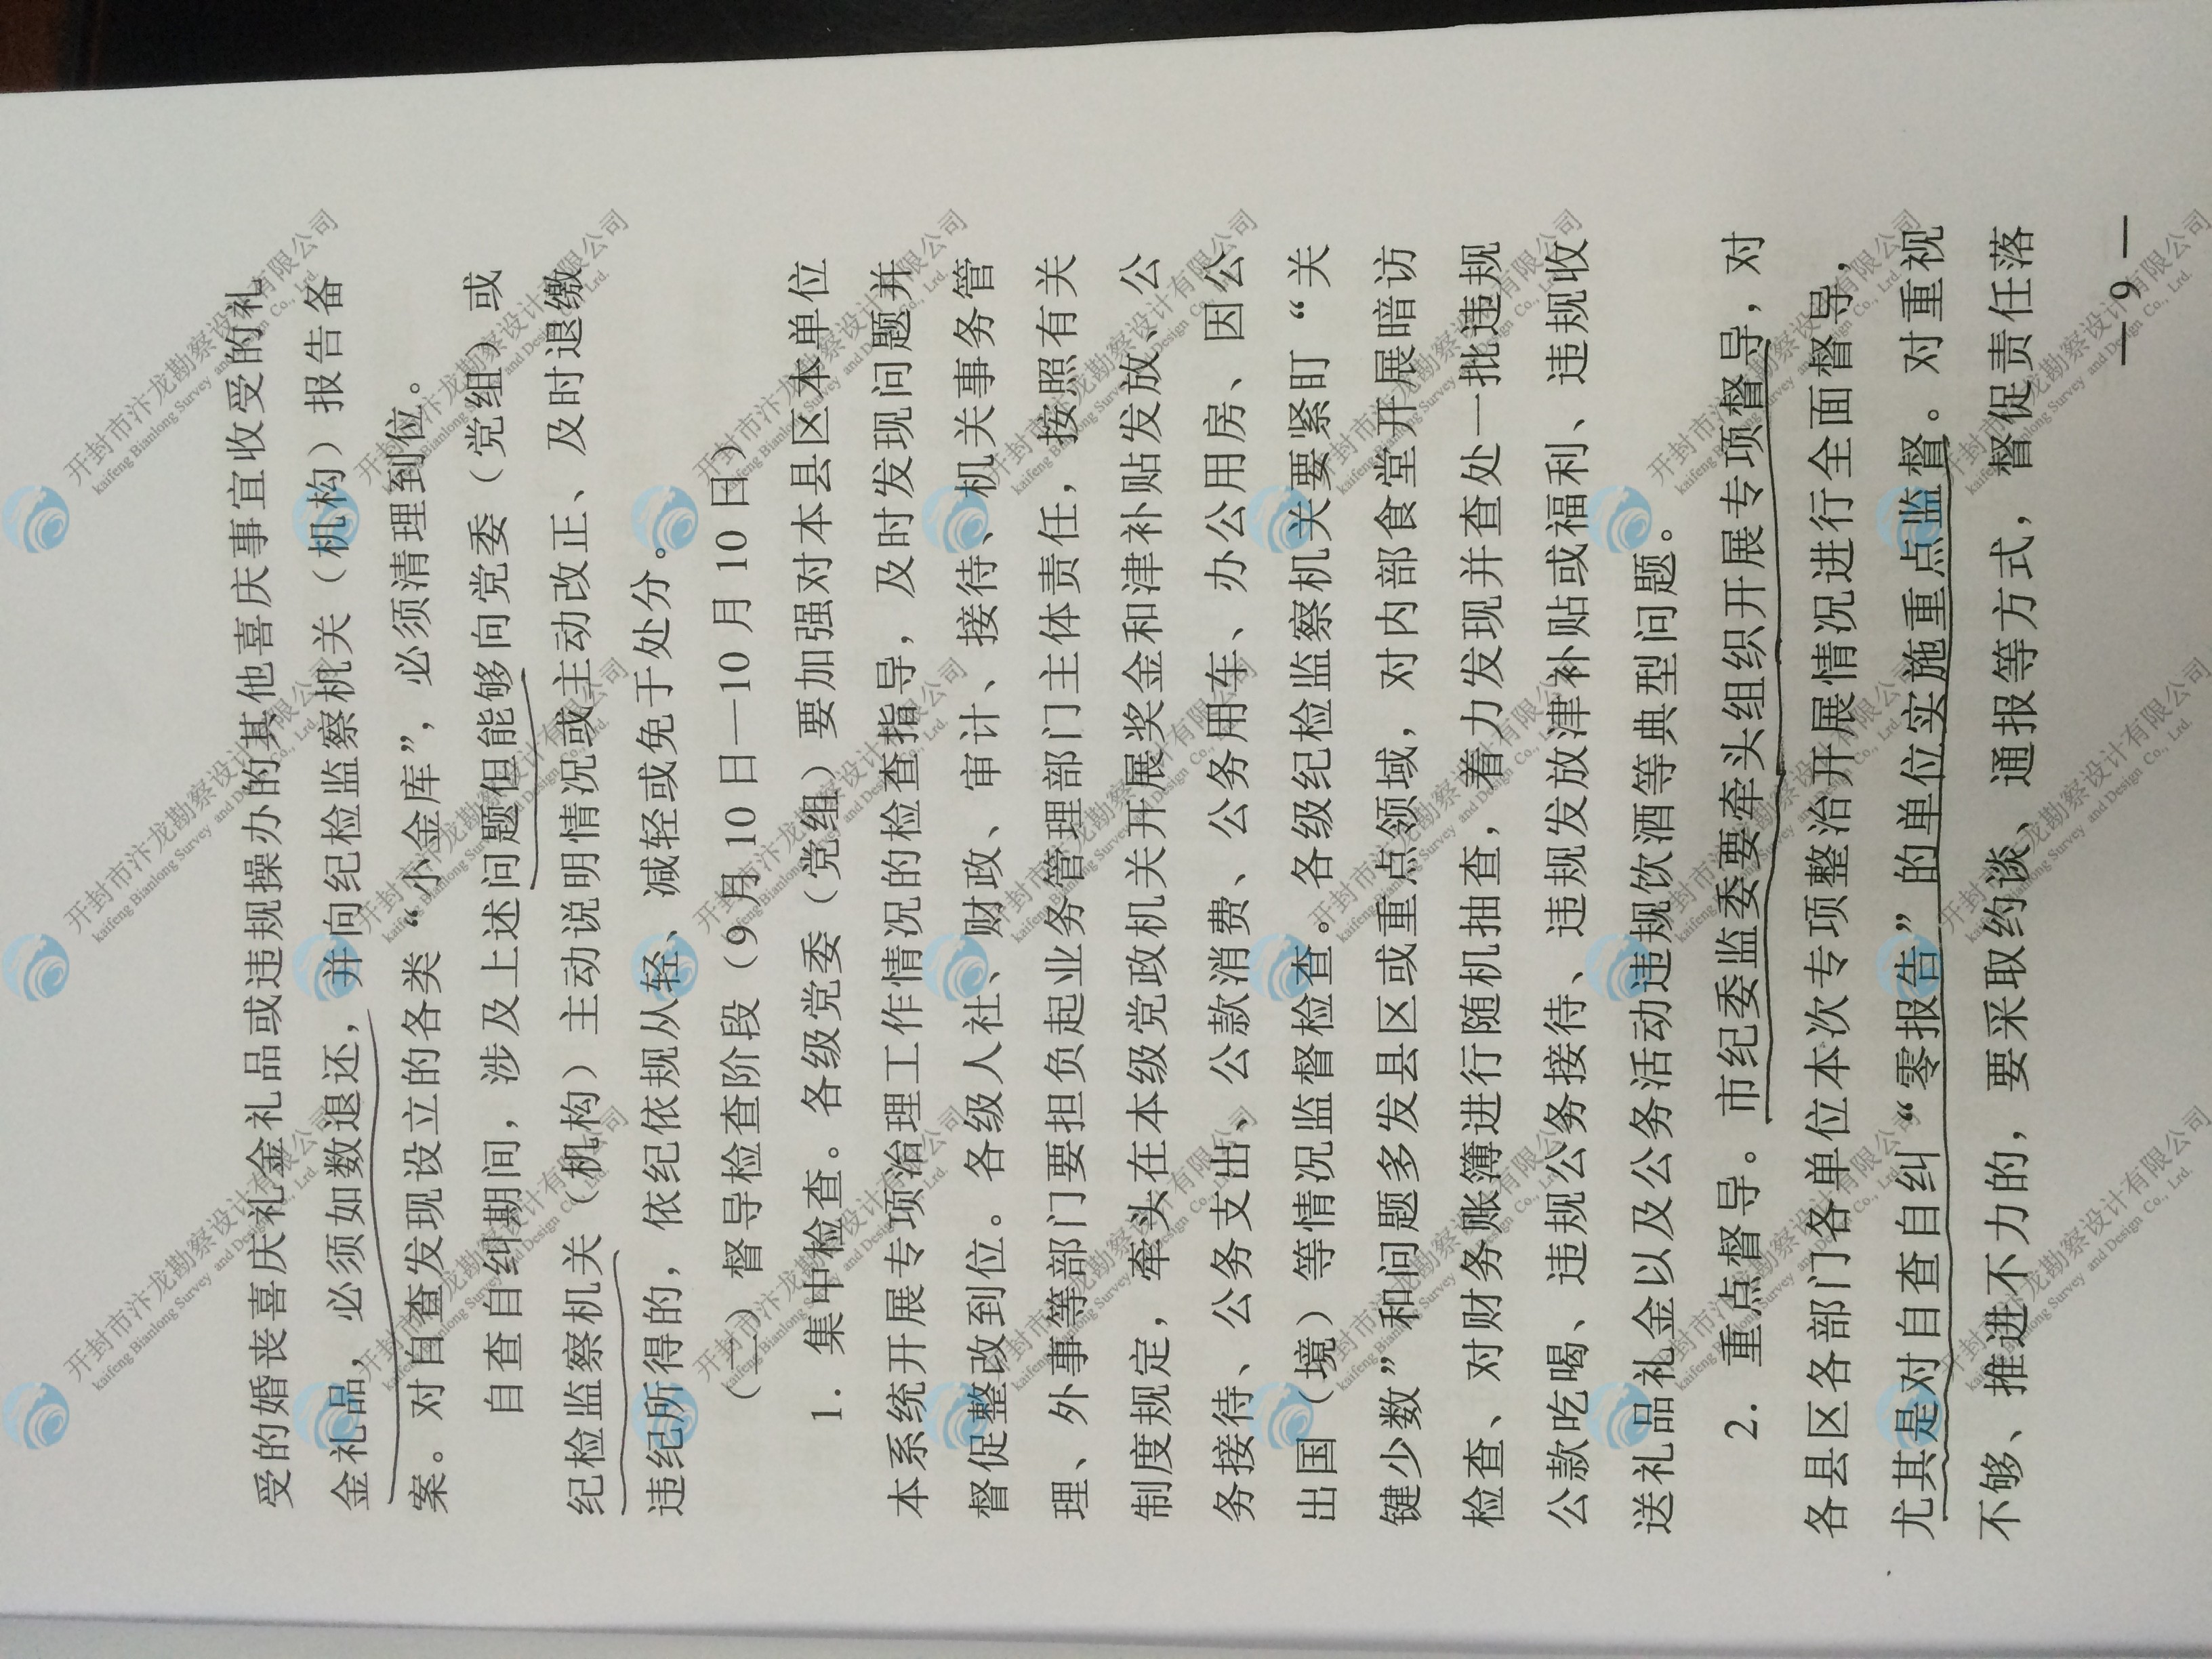 受的婚丧喜庆礼金礼品或违规操办的其他喜庆事宜收受的礼
金礼品，必须如数退还，并向纪检监察机关（机构）报告备
案。对自查发现设立的各类“小金库”，必须清理到位。
自查自纠期间，涉及上述问题但能够向党委（党组）或
纪检监察机关（机构）主动说明情况或主动改正、及时退缴
违纪所得的，依纪依规从轻、减轻或免于处分。
（二）督导检查阶段（9月10日—10月10日）
1. 集中检查。各级党委（党组）要加强对本县区本单位
本系统开展专项治理工作情况的检查指导，及时发现问题并
督促整改到位。各级人社、财政、审计、接待、机关事务管
理、外事等部门要担负起业务管理部门主体责任，按照有关
制度规定，牵头在本级党政机关开展奖金和津补贴发放、公
务接待、公务支出、公款消费、公务用车、办公用房、因公
出国（境）等情况监督检查。各级纪检监察机关要紧盯“关
键少数”和问题多发县区或重点领域，对内部食堂开展暗访
检查、对财务账簿进行随机抽查，着力发现并查处一批违规
公款吃喝、违规公务接待、违规发放津补贴或福利、违规收
送礼品礼金以及公务活动违规饮酒等典型问题。
2. 重点督导。市纪委监委要牵头组织开展专项督导，对
各县区各部门各单位本次专项整治开展情况进行全面督导，
尤其是对自查自纠“零报告”的单位实施重点监督。对重视
不够、推进不力的，要采取约谈、通报等方式，督促责任落
— 9 —
开封市汴龙勘察设计有限公司
kaifeng Bianlong Survey and Design Co., Ltd.